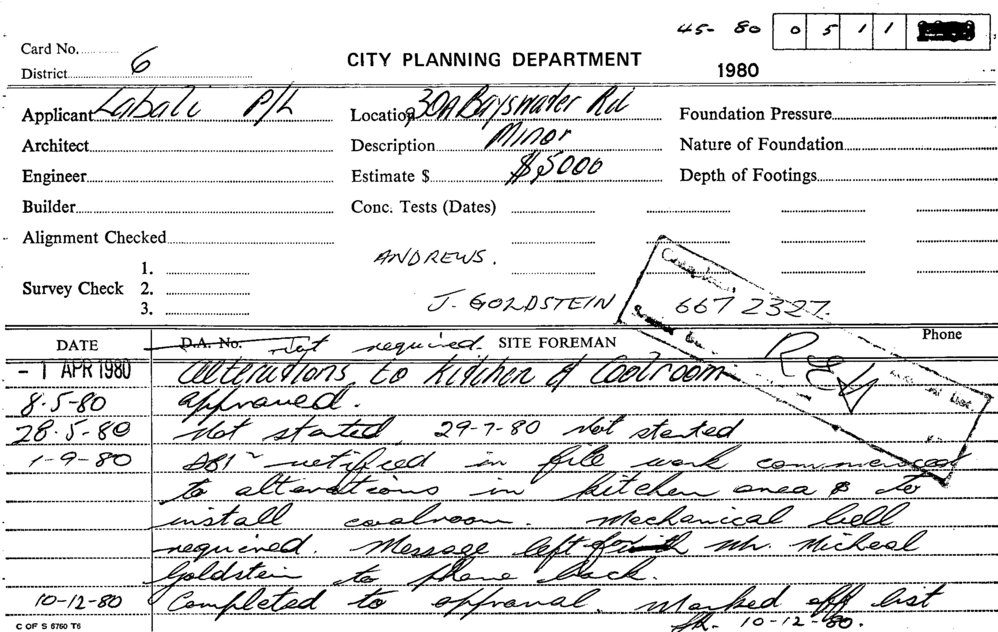 45- 80 0 5 1 1
Card No.
District 6
CITY PLANNING DEPARTMENT
1980
Applicant Labali P/L Location 30A Bayswater Rd Foundation Pressure
Architect Description Minor Nature of Foundation
Engineer Estimate $ $5000 Depth of Footings
Builder Conc. Tests (Dates)
Alignment Checked
ANDREWS.
1.
Survey Check 2.
3.
J. GOLDSTEIN 667 2327.
DATE D.A. No. Not required. SITE FOREMAN Phone
- 1 APR 1980 Alterations to Kitchen & Coolroom
8.5-80 approved.
28.5-80 Not started 29-7-80 Not started
1-9-80 notified in file work commenced
to alterations in kitchen area & to
install coolroom. Mechanical
required. Message left for Mr. Micheal
Goldstein to phone back.
10-12-80 Completed to approval. Marked off list
10-12-80.
C OF S 6760 T6